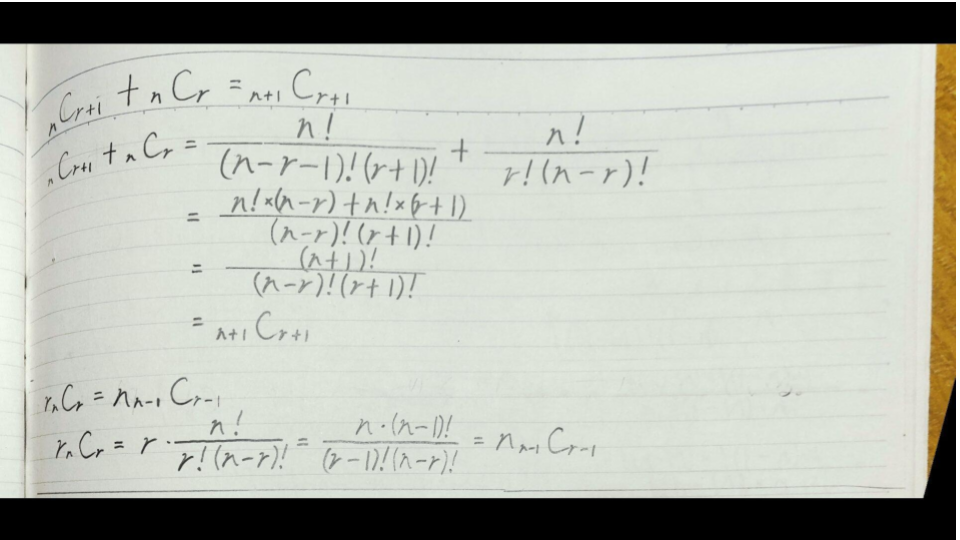 ₙCᵣ₊₁ + ₙCᵣ = ₙ₊₁Cᵣ₊₁
ₙCᵣ₊₁ + ₙCᵣ = n!/((n-r-1)!(r+1)!) + n!/(r!(n-r)!)
= (n!×(n-r)+n!×(r+1))/((n-r)!(r+1)!)
= (n+1)!/((n-r)!(r+1)!)
= ₙ₊₁Cᵣ₊₁
rₙCᵣ = nₙ₋₁Cᵣ₋₁
rₙCᵣ = r・n!/(r!(n-r)!) = n・(n-1)!/((r-1)!(n-r)!) = nₙ₋₁Cᵣ₋₁